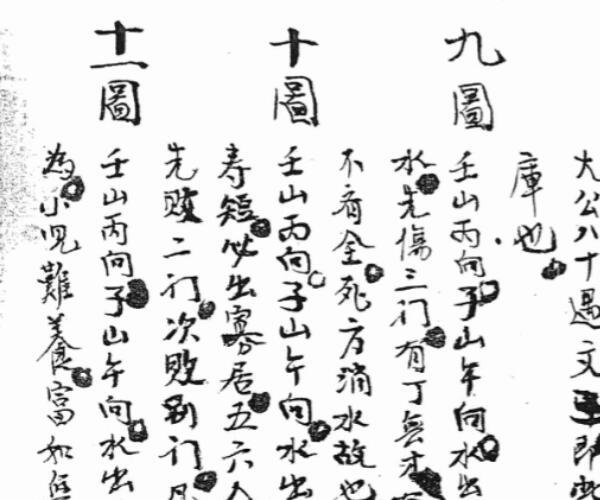 太公八十遇文王即此
庫也
九圖
壬山丙向子山午向水出
水先傷三门有丁無才
不有全死方消水故也
十圖
壬山丙向子山午向水出
寿短必出寡居五六人
先敗二门次敗别门
十一圖
壬山丙向子山午向水出
為小児難養富如